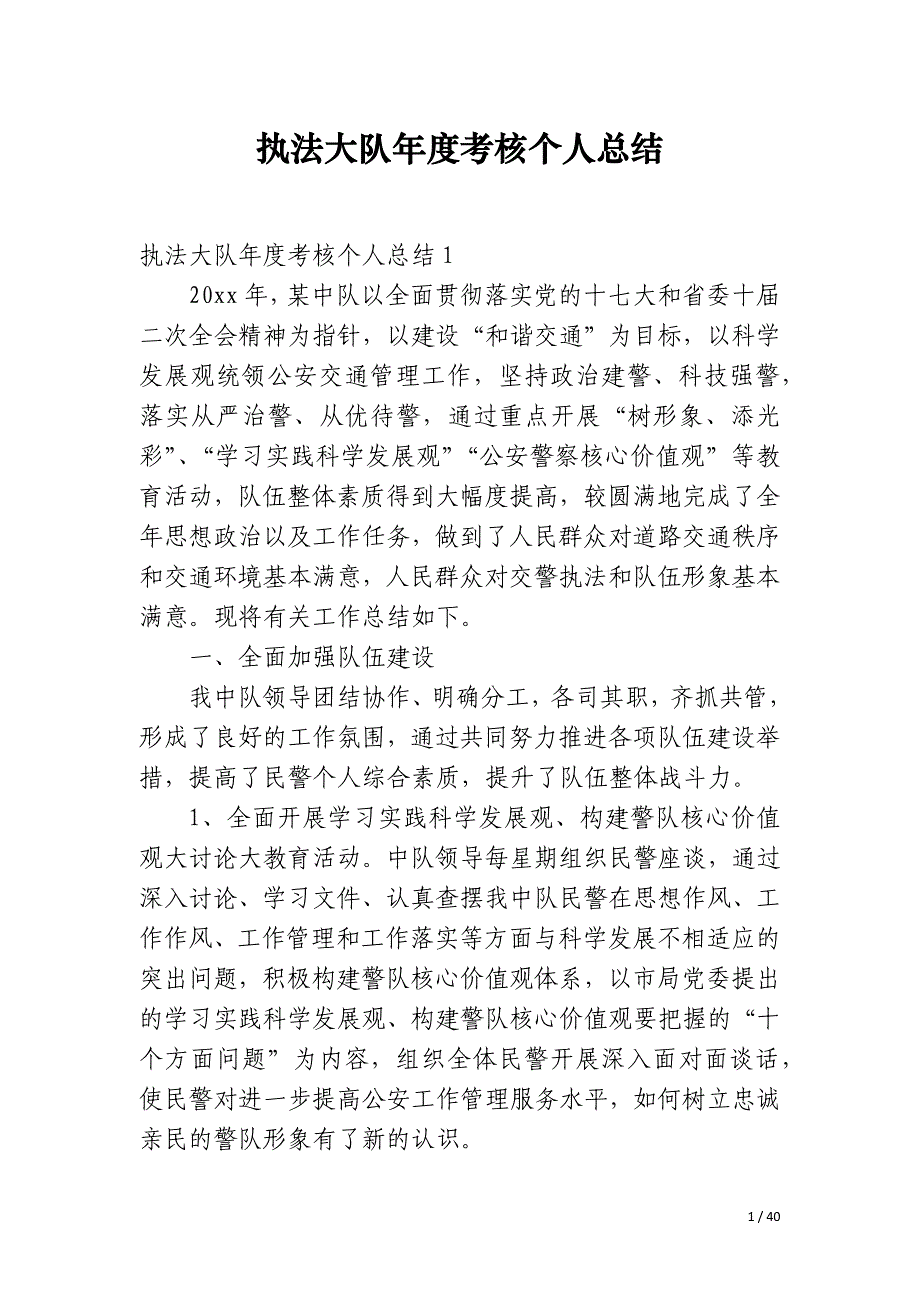 执法大队年度考核个人总结
执法大队年度考核个人总结 1
20xx 年，某中队以全面贯彻落实党的十七大和省委十届
二次全会精神为指针，以建设“和谐交通”为目标，以科学
发展观统领公安交通管理工作，坚持政治建警、科技强警，
落实从严治警、从优待警，通过重点开展“树形象、添光
彩”、“学习实践科学发展观”“公安警察核心价值观”等教
育活动，队伍整体素质得到大幅度提高，较圆满地完成了全
年思想政治以及工作任务，做到了人民群众对道路交通秩序
和交通环境基本满意，人民群众对交警执法和队伍形象基本
满意。现将有关工作总结如下。
一、全面加强队伍建设
我中队领导团结协作、明确分工，各司其职，齐抓共管，
形成了良好的工作氛围，通过共同努力推进各项队伍建设举
措，提高了民警个人综合素质，提升了队伍整体战斗力。
1、全面开展学习实践科学发展观、构建警队核心价值
观大讨论大教育活动。中队领导每星期组织民警座谈，通过
深入讨论、学习文件、认真查摆我中队民警在思想作风、工
作作风、工作管理和工作落实等方面与科学发展不相适应的
突出问题，积极构建警队核心价值观体系，以市局党委提出
的学习实践科学发展观、构建警队核心价值观要把握的“十
个方面问题”为内容，组织全体民警开展深入面对面谈话，
使民警对进一步提高公安工作管理服务水平，如何树立忠诚
亲民的警队形象有了新的认识。
1 / 40